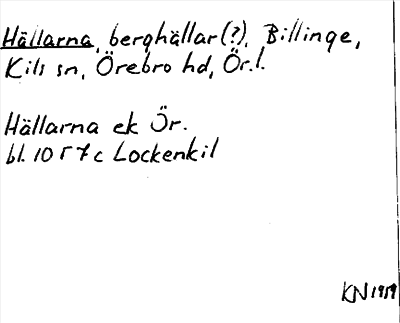 Hällarna, berghällar (?), Billinge,
Kils sn, Örebro hd, Ör. l.
Hällarna ek Ör.
bl. 10 F 7 c Lockenkil
KN 1959